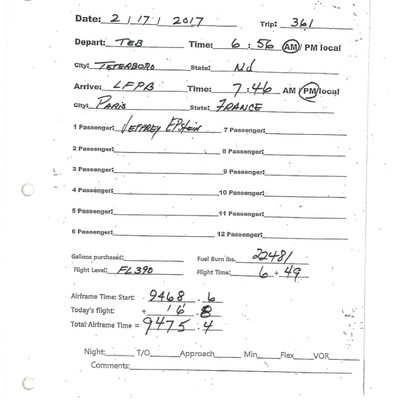 Date: 2 / 17 / 2017 Trip: 361
Depart: TEB Time: 6 : 56 AM / PM local
City: TETERBORO State: NJ
Arrive: LFPB Time: 7 : 46 AM / PM local
City: PARIS State: FRANCE
1 Passenger: Jeffrey Epstein 7 Passenger:
2 Passenger: 8 Passenger:
3 Passenger: 9 Passenger:
4 Passenger: 10 Passenger:
5 Passenger: 11 Passenger:
6 Passenger: 12 Passenger:
Gallons purchased: Fuel Burn lbs. 22481
Flight Level: FL390 Flight Time: 6 + 49
Airframe Time: Start: 9468 . 6
Today's flight: + 6 . 8
Total Airframe Time = 9475 . 4
Night: T/O Approach Min Flex VOR
Comments: